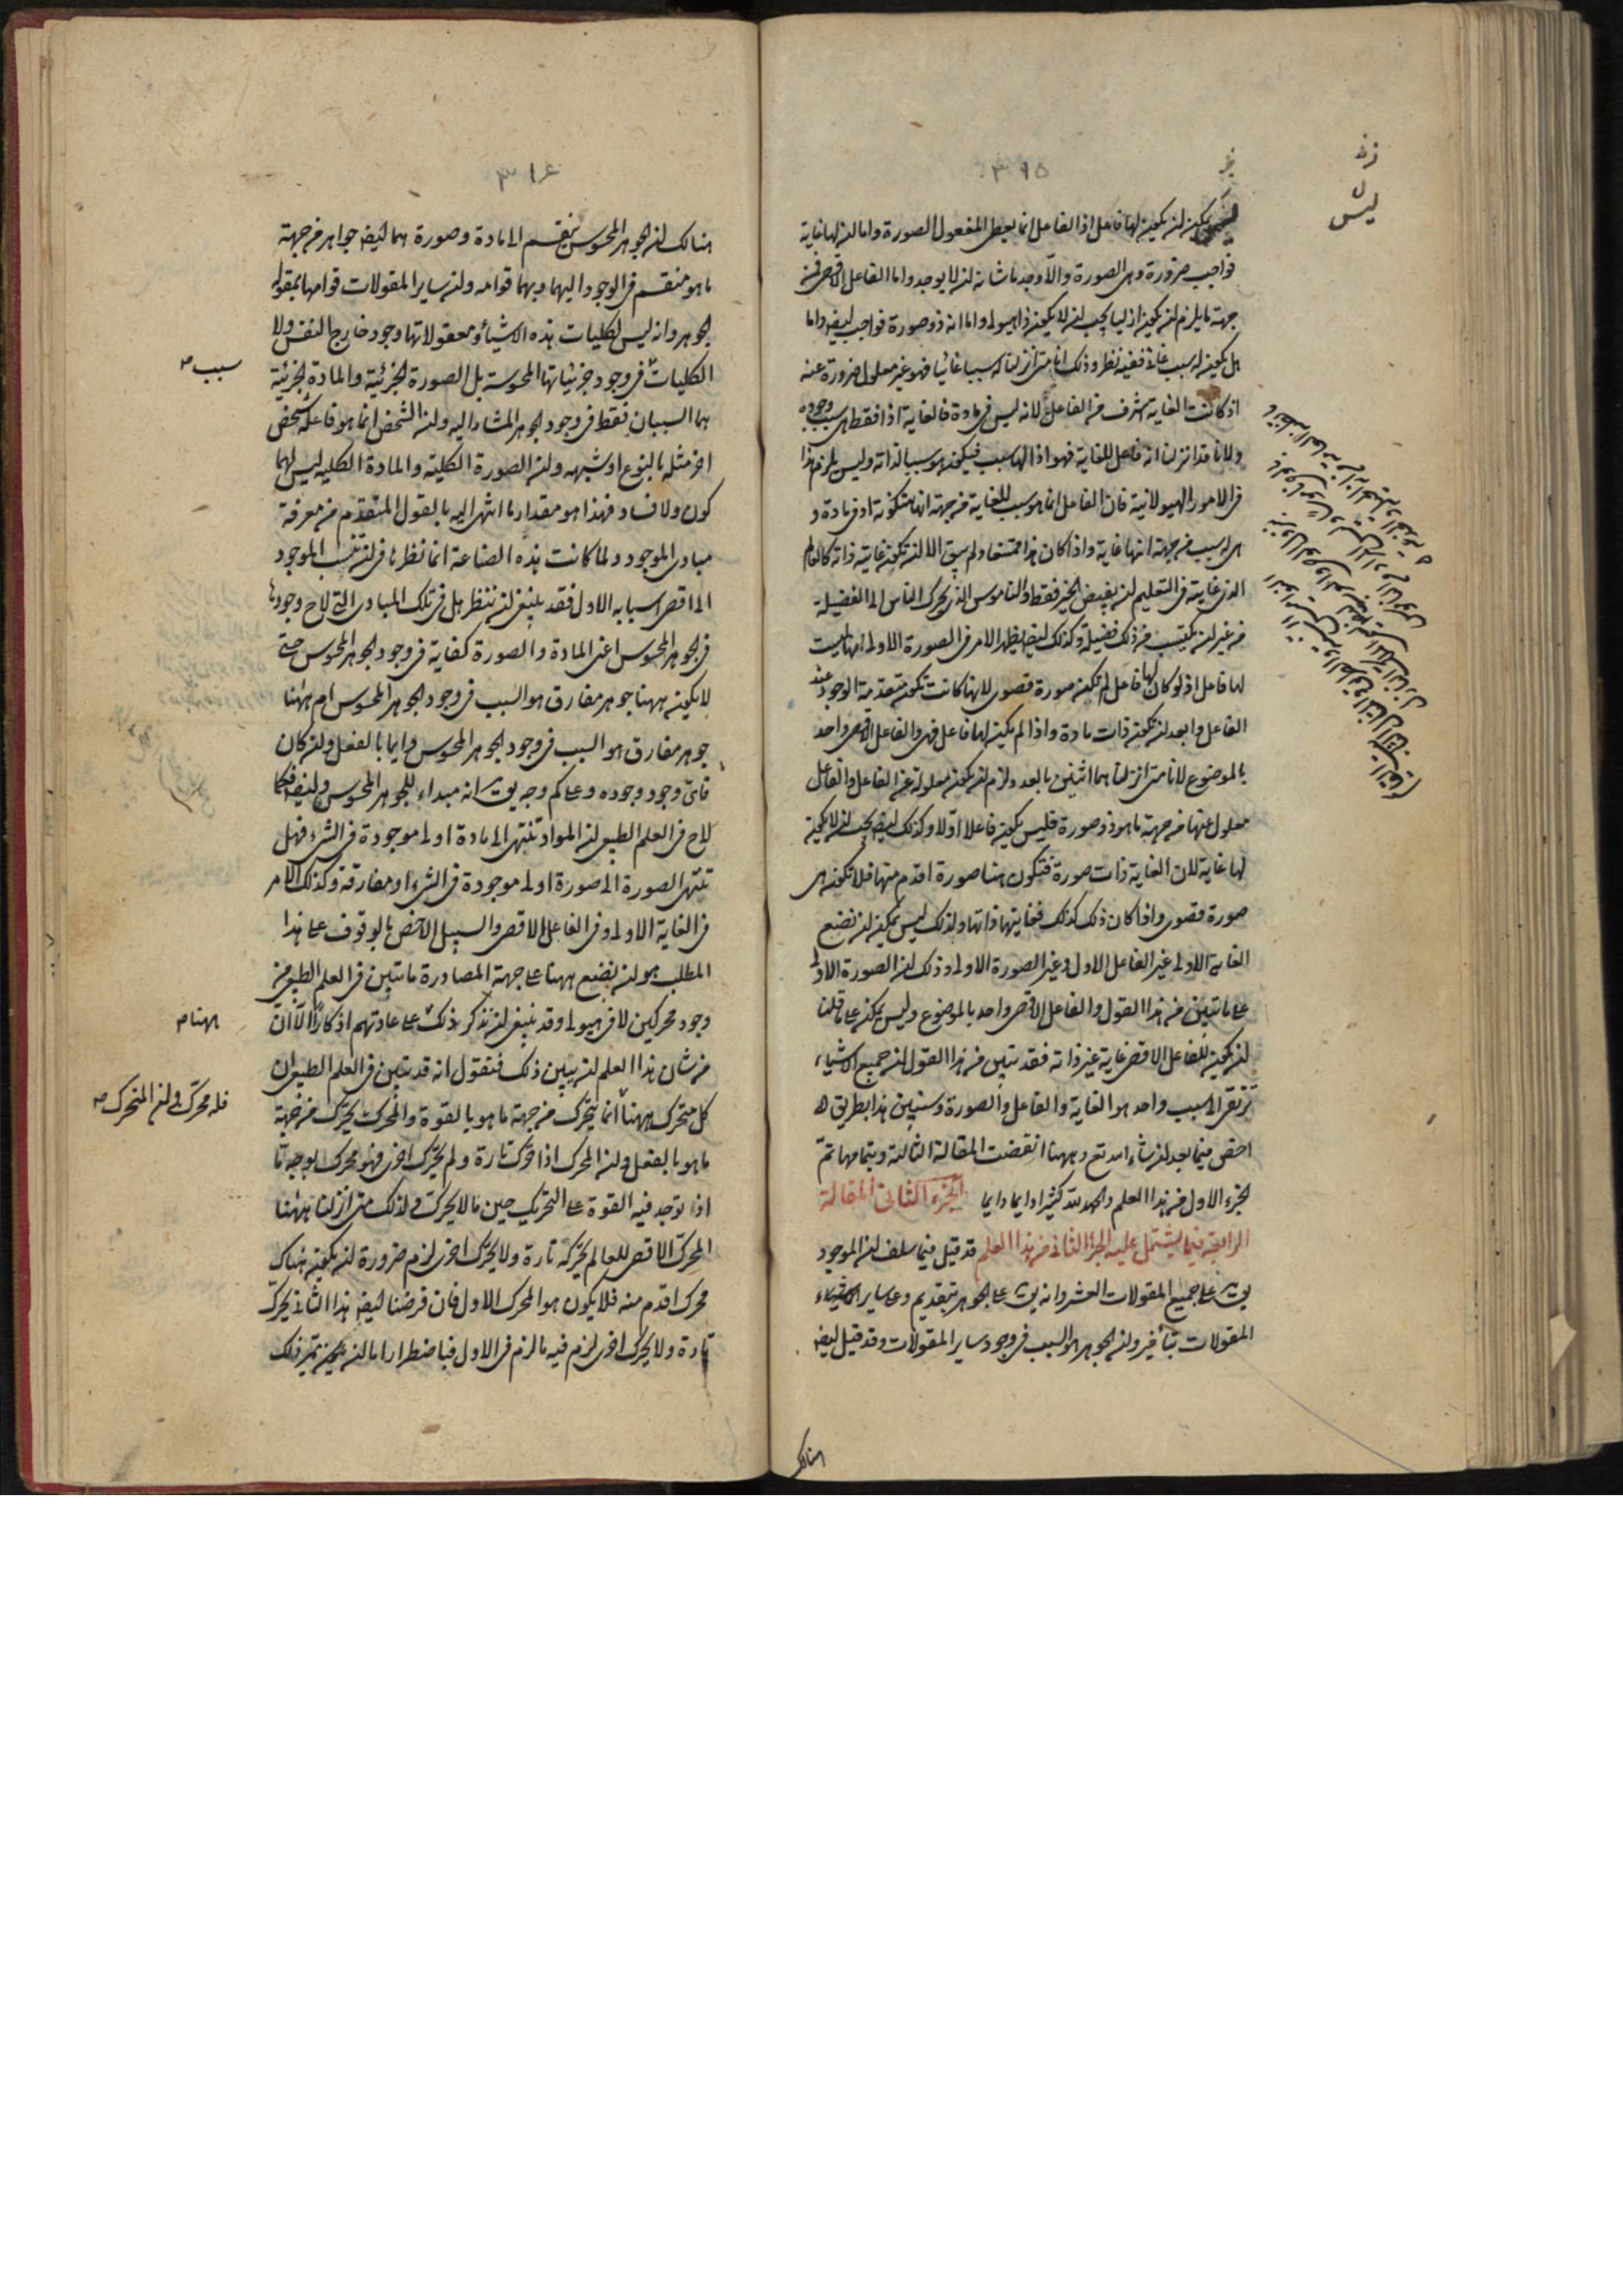 ٣١٥
ليس
يمكن ان يكون لها فاعل اذ الفاعل انما يعطى المفعول الصورة واما ان لها غاية
فواجب ضرورة وهى الصورة والا وجد ما شانه ان لا يوجد واما الفاعل الاقصى فمن
جهة ما يلزم ان يكون ازليا يجب ان لا يكون ذا هيولى واما انه ذو صورة فواجب ايضا واما
هل يكون له سبب غائى ففيه نظر وذلك انا متى انزلنا له سببا غائيا فهو غير معلول ضرورة عنه
اذ كانت الغاية اشرف من الفاعل لانه ليس فى مادة فالغاية اذا فقط هى سبب وجوده
ولانا قد انزلنا انه فاعل للغاية فهو اذا لها سبب فيكون هو سببا لذاته وليس يلزم هذا
فى الامور الهيولانية فان الفاعل انما هو سبب للغاية من جهة انها متكونة او فى مادة و
هى له سبب من جهة انها غاية واذا كان هذا ممتنعا ولم يبق الا ان تكون غايته ذاته كالعالم
الذى غايته فى التعليم ان يفيض الخير فقط والناموس الذى يحرك الناس الى الفضيلة
من غير ان يكتسب من ذلك فضيلة وكذلك ايضا يظهر الامر فى الصورة الاولى انها ليست
لها فاعل اذ لو كان لها فاعل لم تكن صورة قصوى لانها كانت تكون متقدمة الوجود عند
الفاعل وابعد ان تكون ذات مادة واذا لم يكن لها فاعل فهى والفاعل الاقصى واحد
بالموضوع لانا متى انزلنا هما اثنين بالعدد لزم ان تكون معلولة عن الفاعل والفاعل
معلول عنها من جهة ما هو ذو صورة فليس يكون فاعلا اولا وكذلك ايضا يجب ان لا يكون
لها غاية لان الغاية ذات صورة فتكون هنا صورة اقدم منها فلا تكون هى
صورة قصوى واذا كان ذلك كذلك فغايتها ذاتها ولذلك ليس يمكن ان نضع
الغاية الاولى غير الفاعل الاول وغير الصورة الاولى وذلك ان الصورة الاولى
على ما تبين من هذا القول والفاعل الاقصى واحد بالموضوع وليس يمكن على ما قلنا
ان يكون للفاعل الاقصى غاية غير ذاته فقد تبين من هذا القول ان جميع الاشياء
ترتقى الى سبب واحد هو الغاية والفاعل والصورة وسنبين هذا بطريق
اخص فيما بعد ان شاء الله تع وههنا انقضت المقالة الثالثة وبتمامها تم
الجزء الاول من هذا العلم والحمد لله كثيرا دايما دايما الجزء الثانى المقالة
الرابعة فيما يشتمل عليه الجزء الثانى من هذا العلم قد قيل فيما سلف ان الموجود
يق على جميع المقولات العشر وانه يق على الجوهر بتقديم وعلى ساير
المقولات بتأخير وان الجوهر هو السبب فى وجود ساير المقولات وقد قيل ايضا
هنالك
٣١٦
هنالك ان الجوهر المحسوس ينقسم الى مادة وصورة هما ايضا جواهر من جهة
ما هو منقسم فى الوجود اليهما وبهما قوامه وان ساير المقولات قوامها بمقولة
الجوهر وانه ليس لكليات هذه الاشياء ومعقولاتها وجود خارج النفس ولا
الكليات فى وجود جزئياتها المحسوسة بل الصورة الجزئية والمادة الجزئية
سبب
هما السببان فقط فى وجود الجوهر المشار اليه وان الشخص انما هو فاعله شخص
اخر مثله بالنوع او شبيهه وان الصورة الكلية والمادة الكلية ليس لهما
كون ولا فساد فهذا هو مقدار ما انتهى اليه بالقول المتقدم من معرفة
مبادى الموجود ولما كانت هذه الصناعة انما نظرها فى ان تنسب الموجود
الى اقصى اسبابه الاول فقد ينبغى ان ننظر هل فى تلك المبادى التى لاح وجودها
فى الجوهر المحسوس اعنى المادة والصورة كفاية فى وجود الجوهر المحسوس حتى
لا يكون ههنا جوهر مفارق هو السبب فى وجود الجوهر المحسوس ام ههنا
جوهر مفارق هو السبب فى وجود الجوهر المحسوس دايما بالفعل وان كان
فاى وجود وجوده وعلى كم وجه يق انه مبداء للجوهر المحسوس وايضا فكما
لاح فى العلم الطبيعى ان المواد تنتهى الى مادة اولى موجودة فى الشىء فهل
تنتهى الصورة الى صورة اولى موجودة فى الشىء او مفارقة وكذلك الامر
فى الغاية الاولى وفى الفاعل الاقصى والسبيل الاخص بالوقوف على هذا
المطلب هو ان نضع ههنا على جهة المصادرة ما تبين فى العلم الطبيعى من
وجود محركين لا فى هيولى وقد ينبغى ان نذكر ذلك على عادتهم اذكارا لا ان
ههنا
من شان هذا العلم ان يبين ذلك فنقول انه قد تبين فى العلم الطبيعى ان
كل متحرك ههنا انما يتحرك من جهة ما هو بالقوة والمحرك يحرك من جهة
فله محرك وان المتحرك
ما هو بالفعل وان المحرك اذا حرك تارة ولم يحرك اخرى فهو محرك بوجه ما
اذا توجد فيه القوة على التحريك حين ما لا يحرك ولذلك متى انزلنا ههنا
المحرك الاقصى للعالم يحركه تارة ولا يحرك اخرى لزم ضرورة ان يكون هناك
محرك اقدم منه فلا يكون هو المحرك الاول فان فرضنا ايضا هذا الثانى يحرك
تارة ولا يحرك اخرى لزم فيه ما لزم فى الاول فباضطرار اما ان